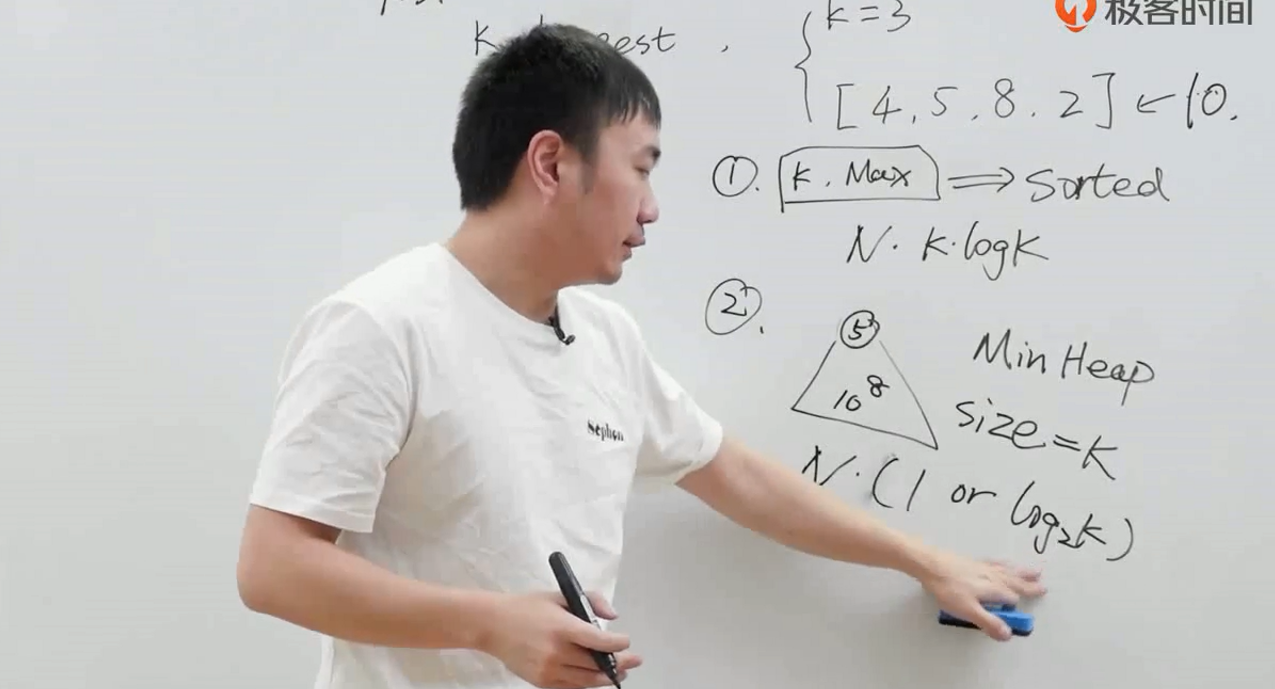 极客时间
k = 3
[4, 5, 8, 2] ← 10.
①. k. Max ⟹ Sorted
N · k · log k
②.
5
10⁸
Min Heap
size = k
N · (1 or log₂k)
Sephen